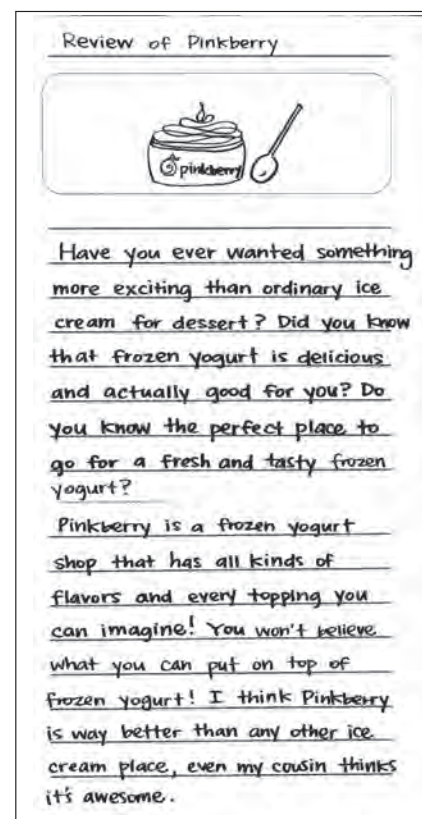 Review of Pinkberry
pinkberry
Have you ever wanted something
more exciting than ordinary ice
cream for dessert? Did you know
that frozen yogurt is delicious
and actually good for you? Do
you know the perfect place to
go for a fresh and tasty frozen
yogurt?
Pinkberry is a frozen yogurt
shop that has all kinds of
flavors and every topping you
can imagine! You won't believe
what you can put on top of
frozen yogurt! I think Pinkberry
is way better than any other ice
cream place, even my cousin thinks
it's awesome.